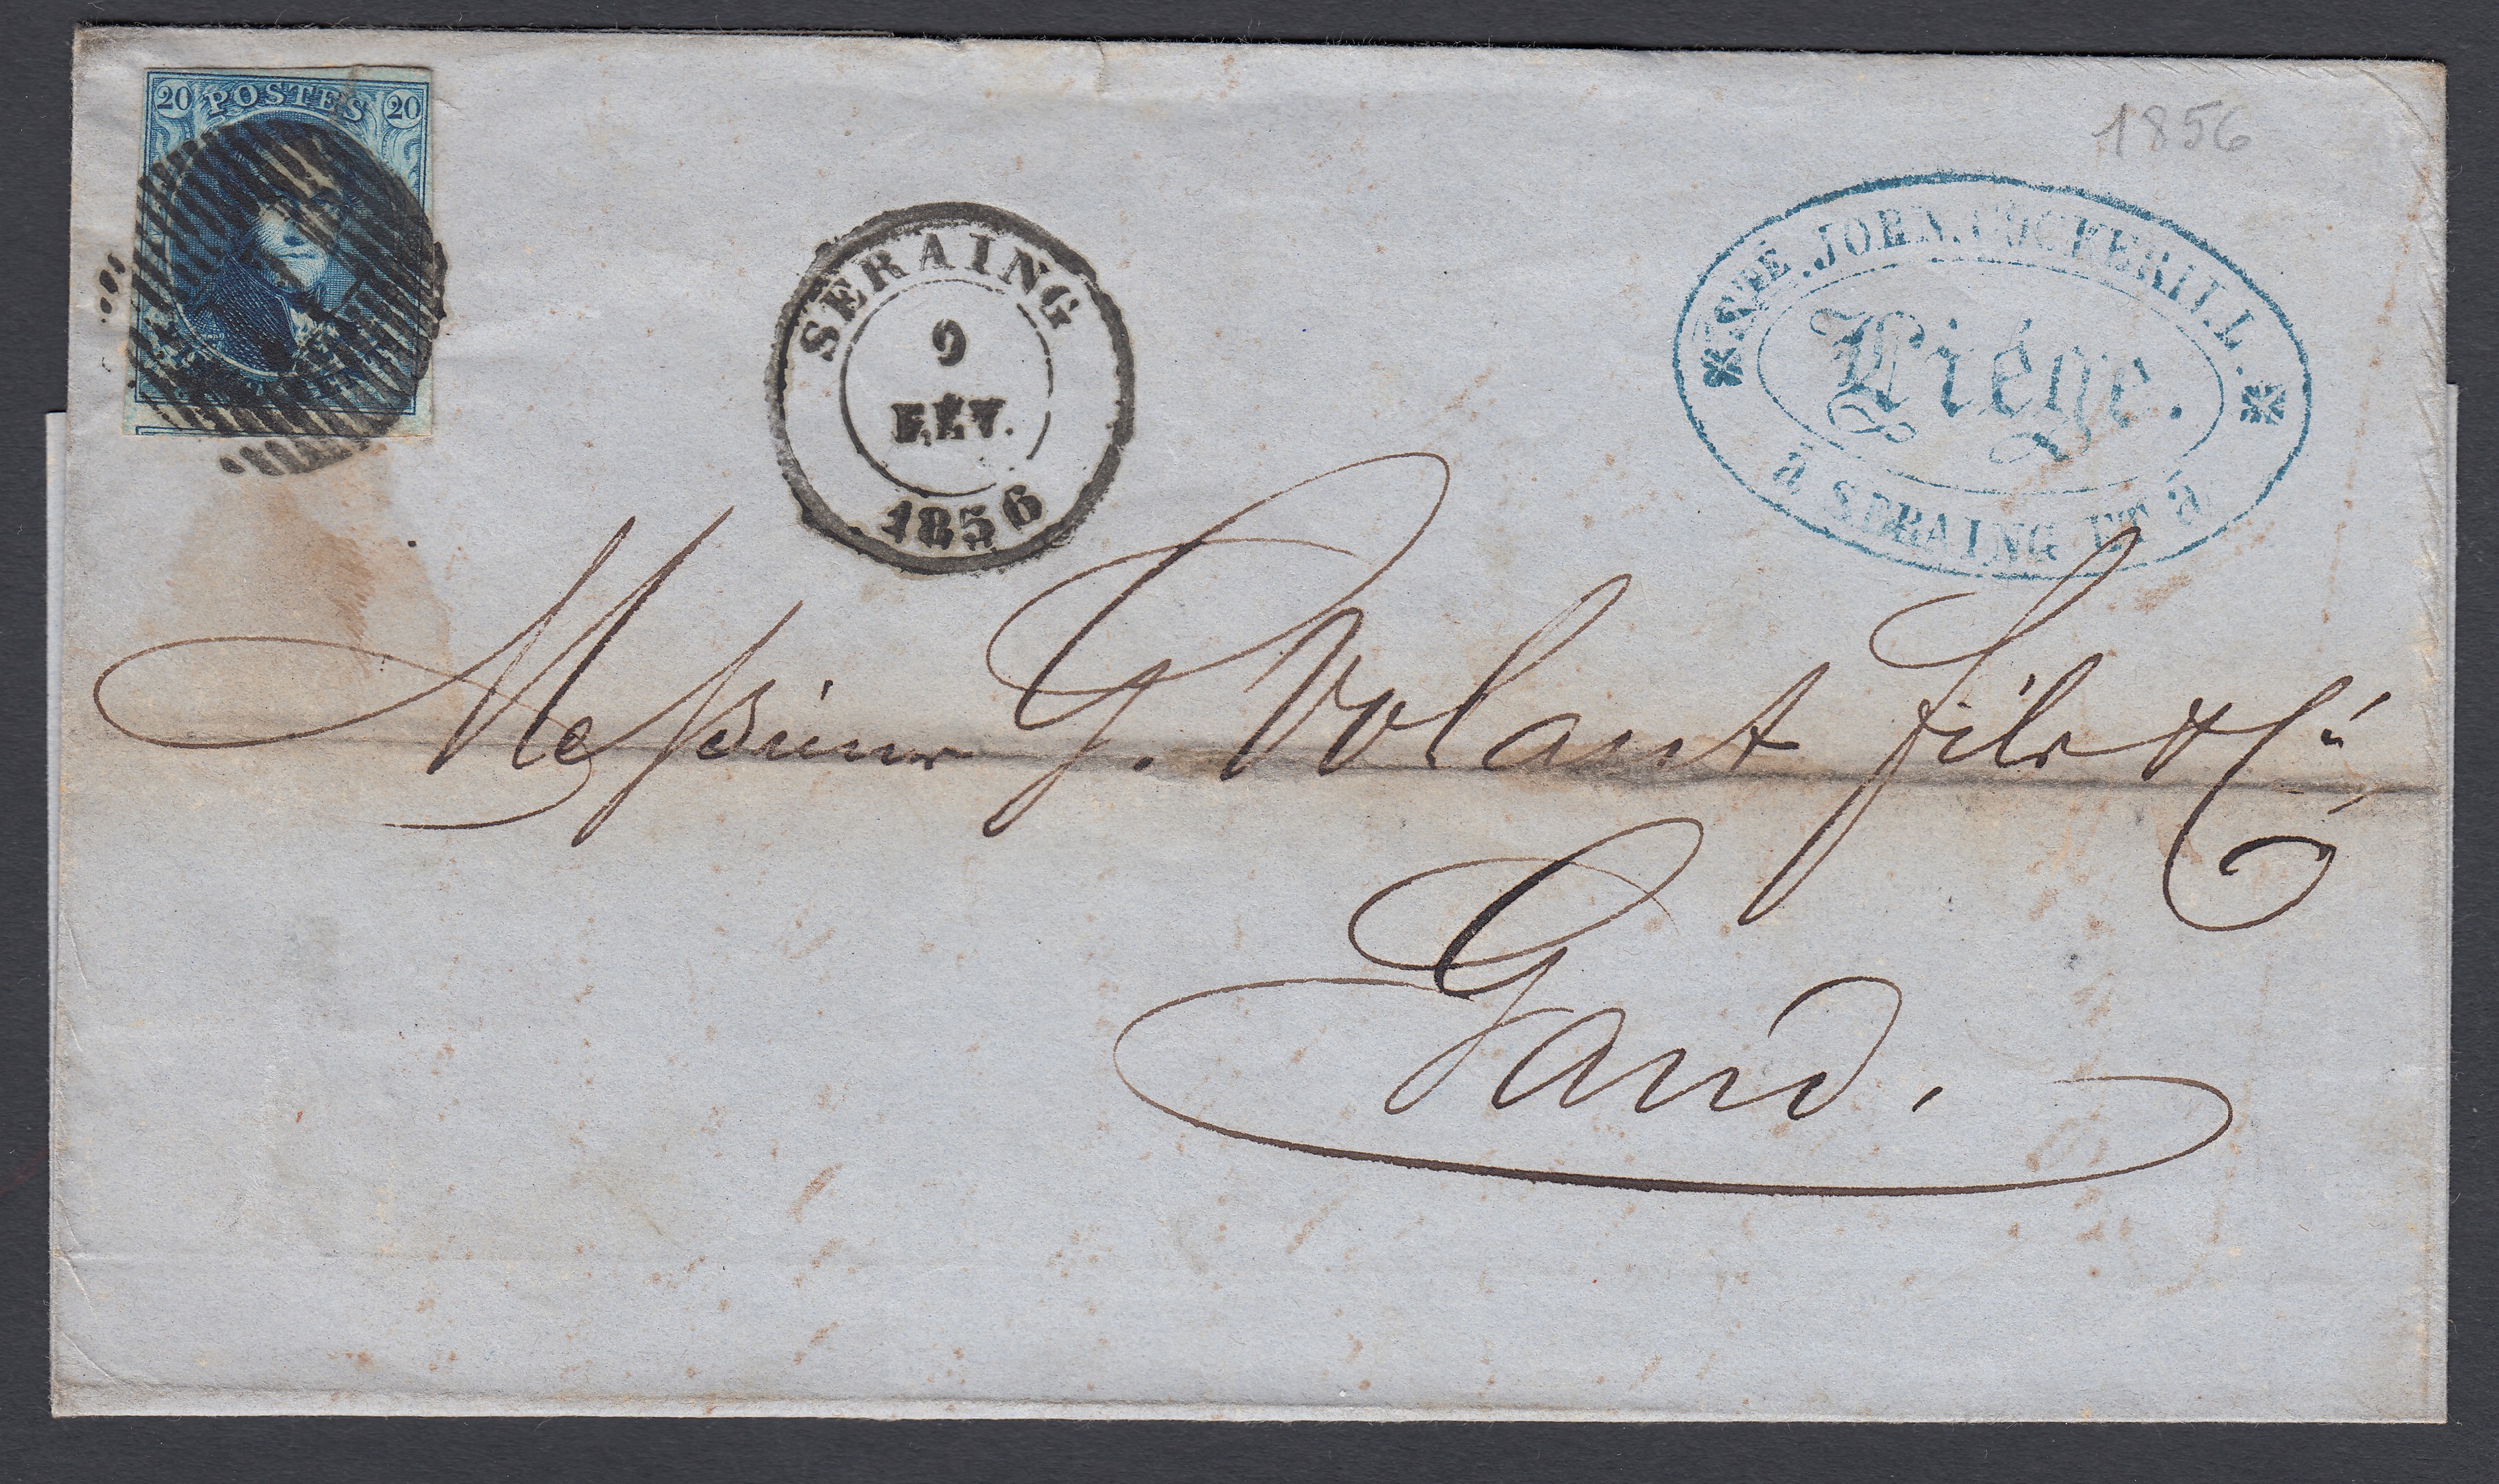 20 POSTES 20
1856
SERAING
9
FÉV.
1856
STÉ. JOHN. COCKERILL.
Liége.
à SERAING ET à
Messieurs G. Volant fils & Cie
Gand.